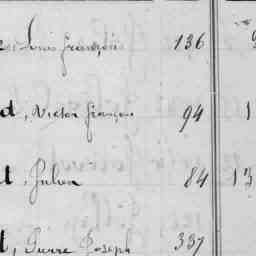 e Louis François 136
d, Victor François 94 1
d, Julien 84 13
d, Pierre Joseph 337